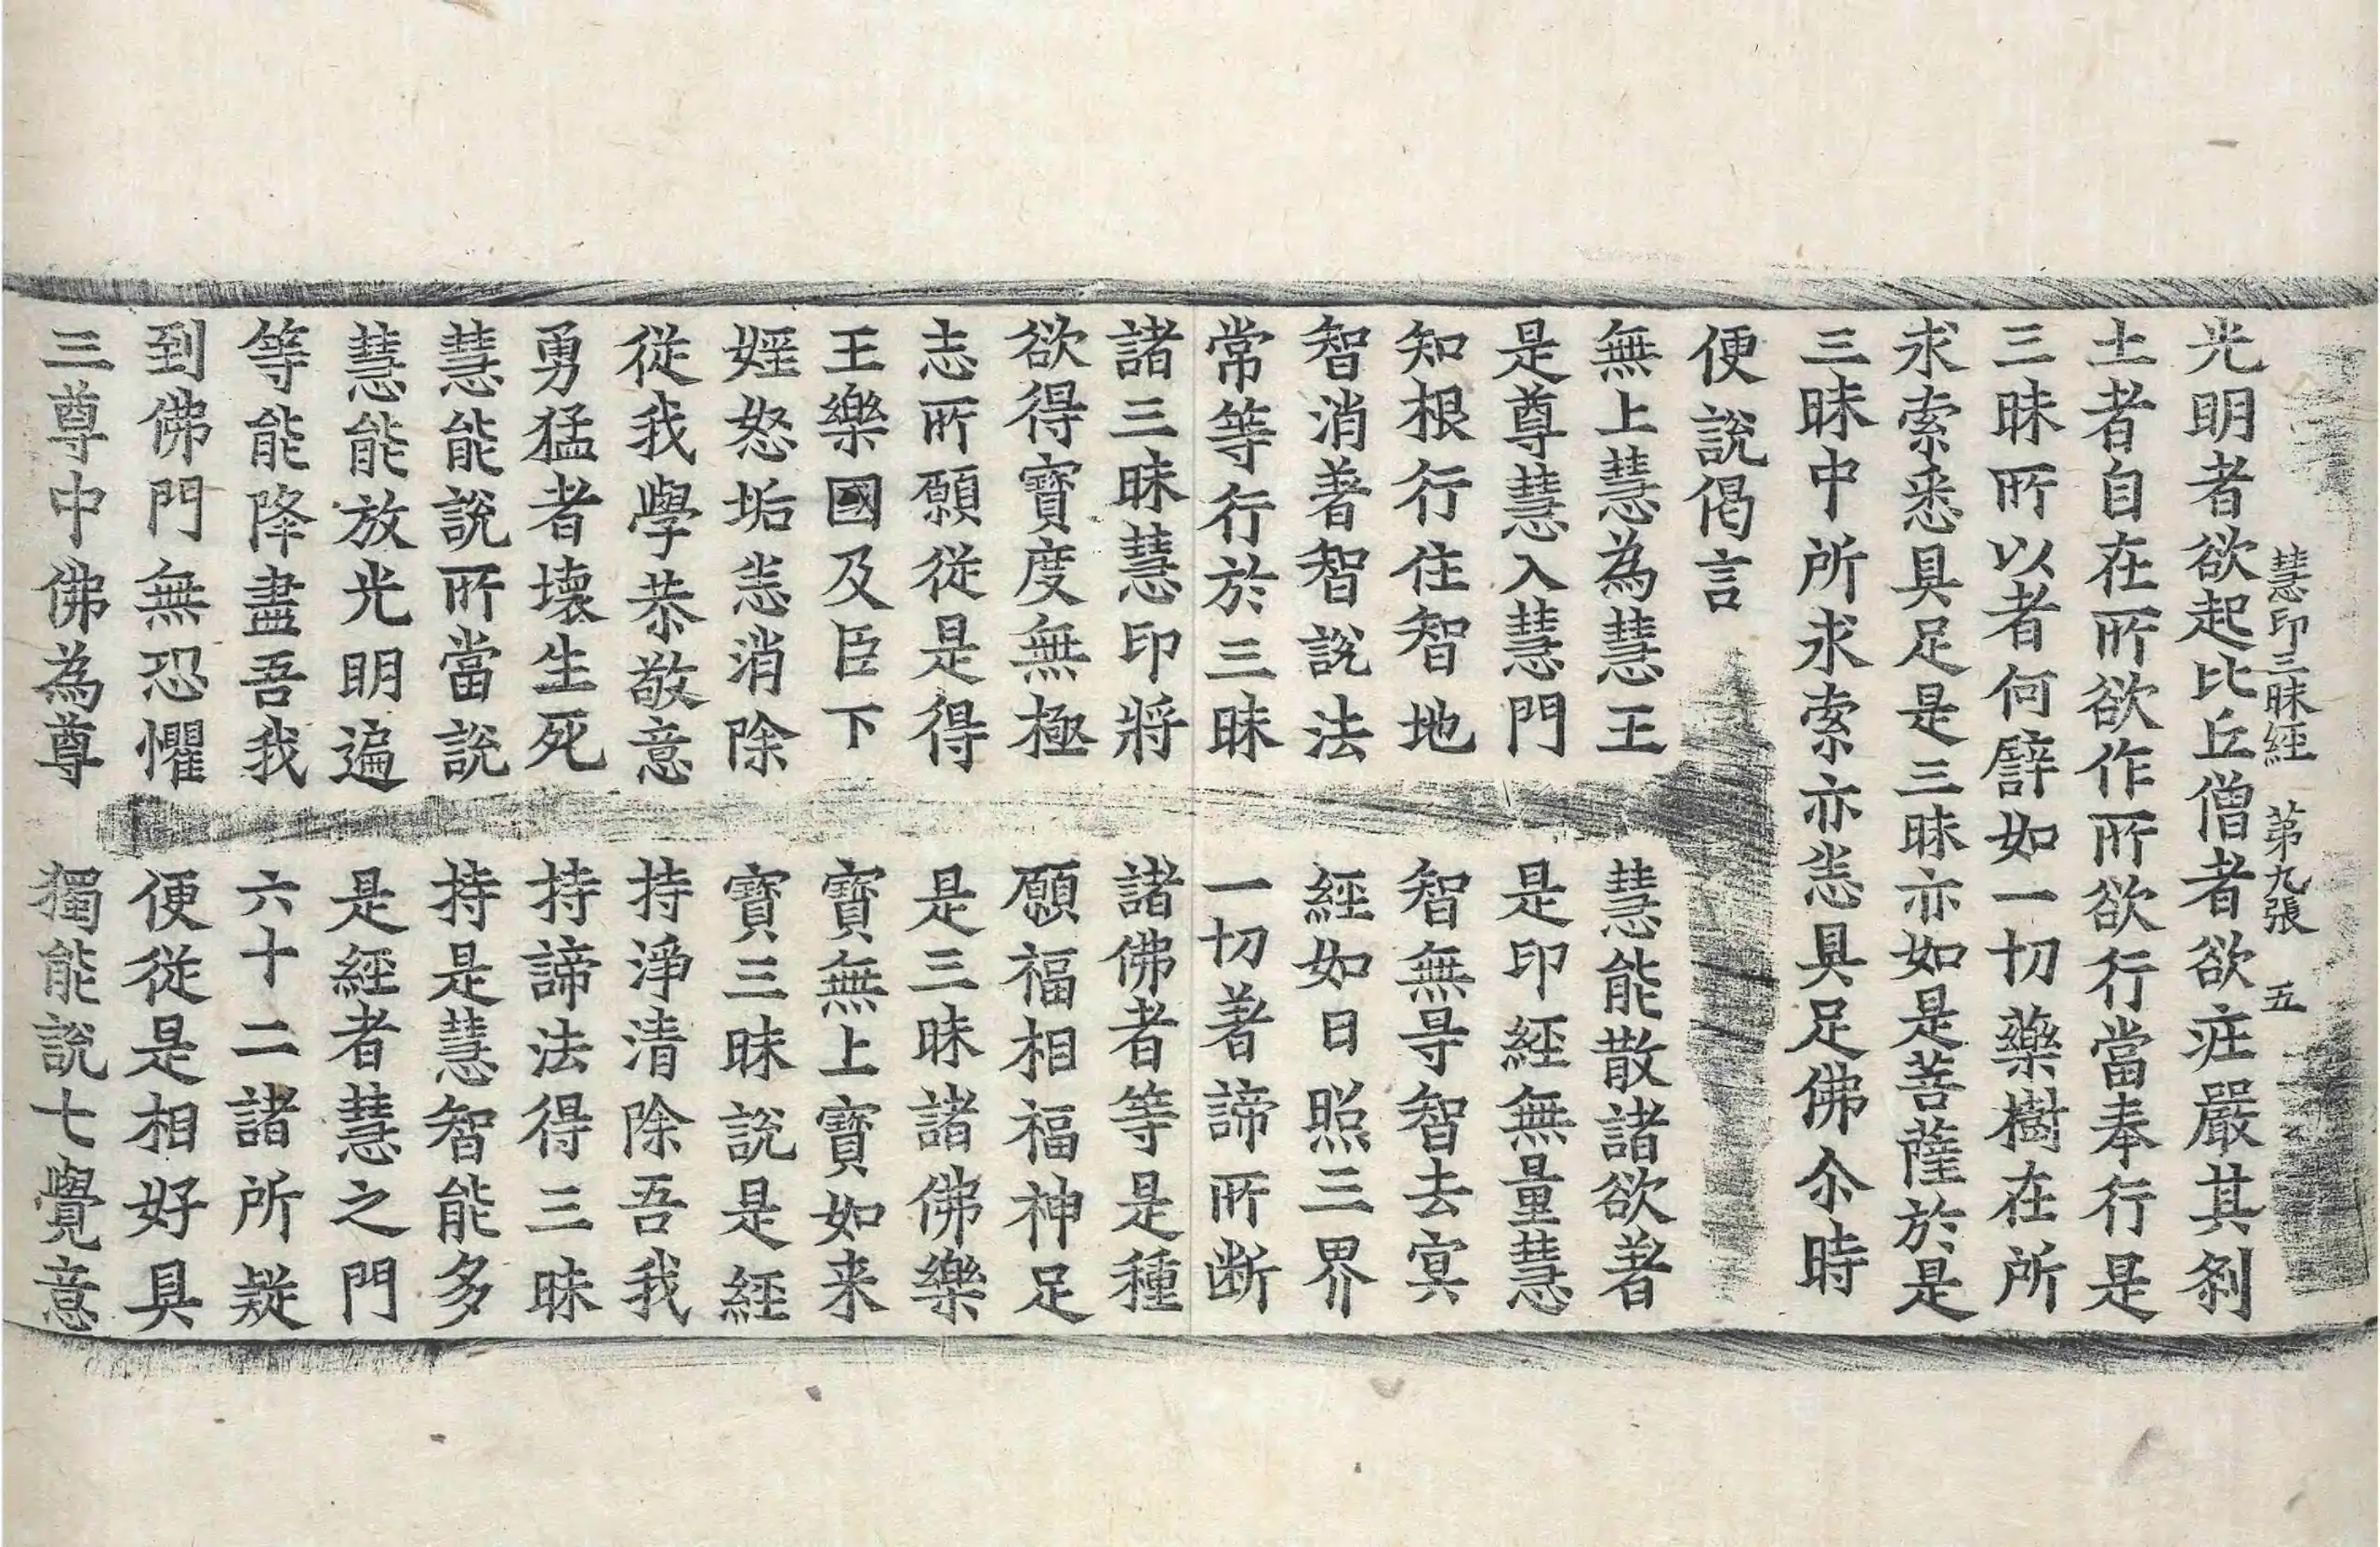 慧印三昧經 第九張 五
光明者欲起比丘僧者欲疘嚴其剎
土者自在所欲作所欲行當奉行是
三昧所以者何譬如一切藥樹在所
求索悉具足是三昧亦如是菩薩於是
三昧中所求索亦恙具足佛尒時
便說偈言
無上慧為慧王 慧能散諸欲著
是尊慧入慧門 是印經無量慧
知根行住智地 智無㝵智去㝠
智消著智說法 經如日照三界
常等行於三昧 一切著諦所断
諸三昧慧印將 諸佛者等是種
欲得寶度無極 願福相福神足
志所願從是得 是三昧諸佛樂
王樂國及臣下 寶無上寶如来
婬怒垢恙消除 寶三昧說是經
從我學恭敬意 持淨清除吾我
勇猛者壞生死 持諦法得三昧
慧能說所當說 持是慧智能多
慧能放光明遍 是經者慧之門
等能降盡吾我 六十二諸所疑
到佛門無恐懼 便從是相好具
三尊中佛為尊 獨能說七覺意